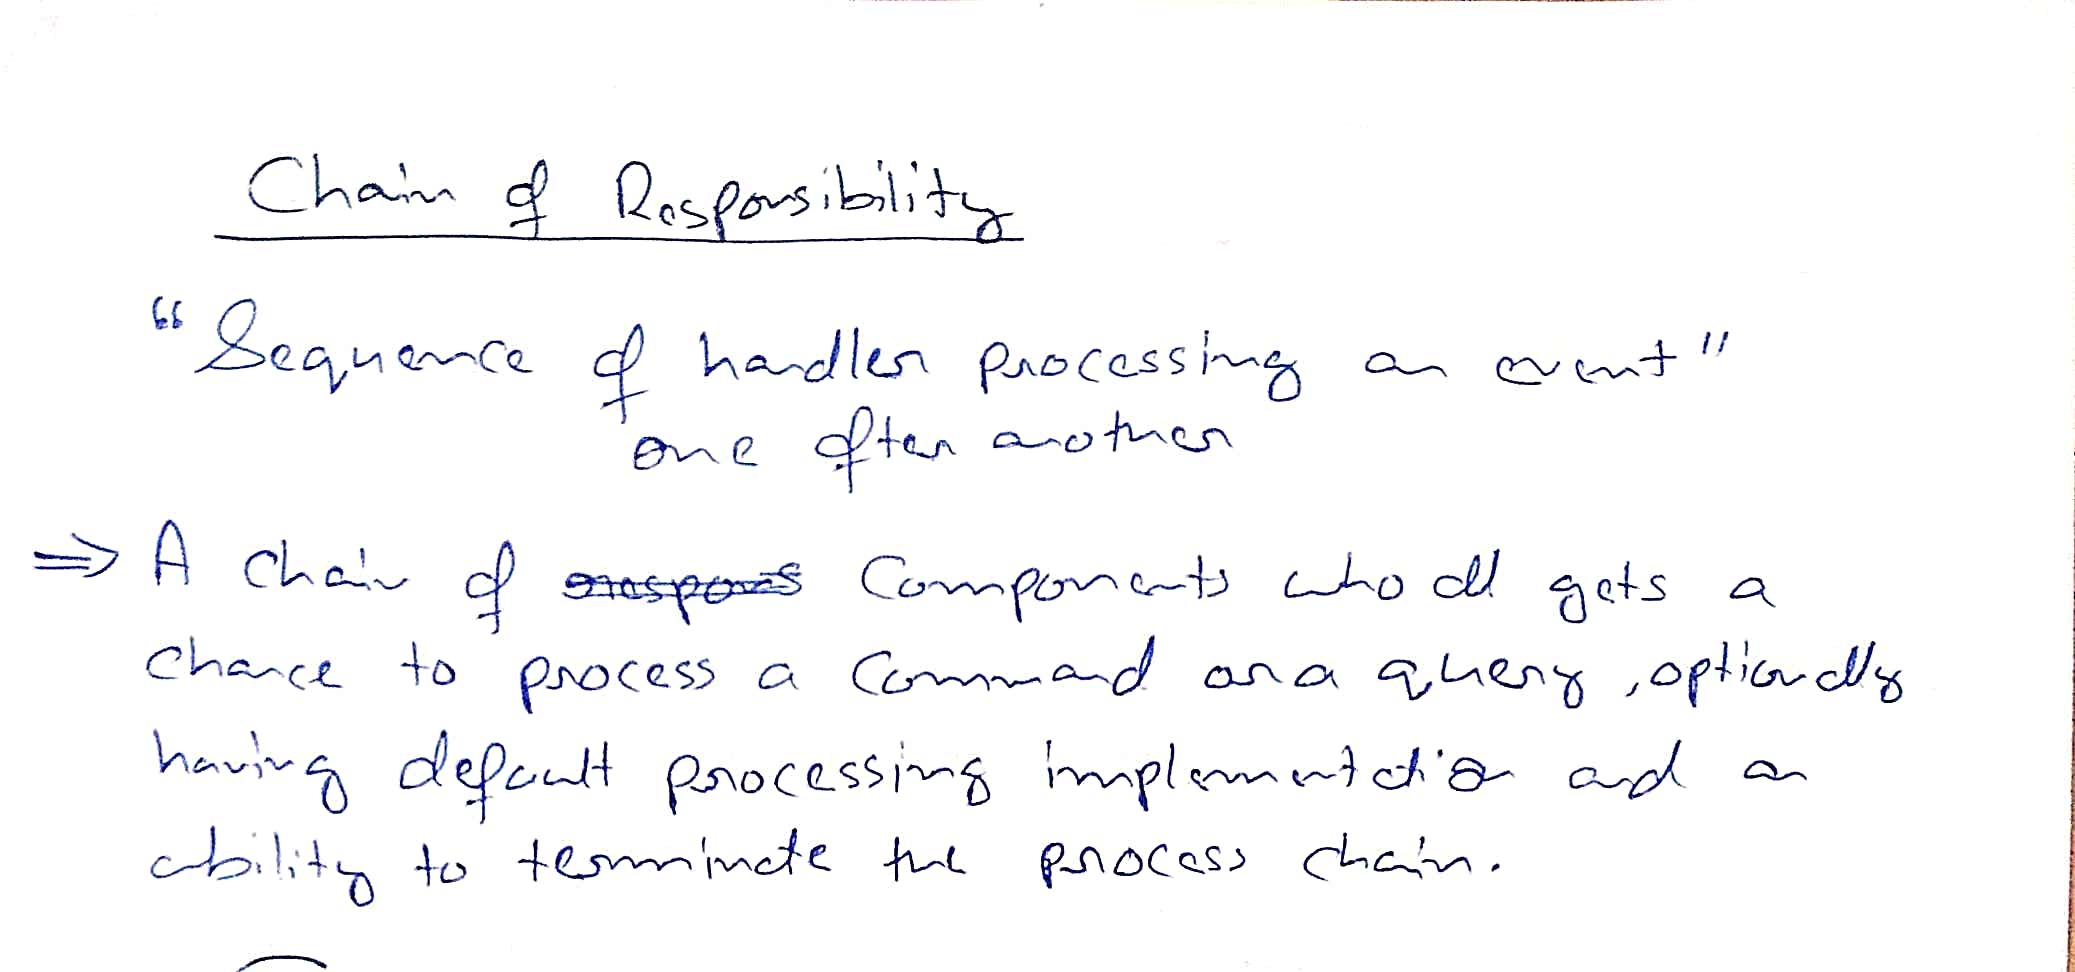 Chain of Responsibility
"Sequence of handler processing an event"
one after another
⇒ A chain of Components who all gets a
chance to process a Command or a query, optionally
having default processing implementation and an
ability to terminate the process chain.